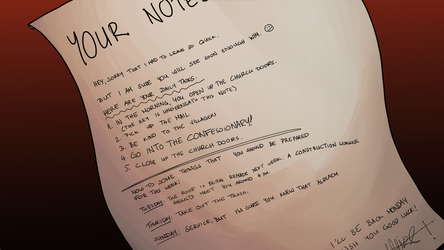 YOUR NOTE
HEY, SORRY THAT I HAD TO LEAVE SO QUICK.
BUT I AM SURE YOU WILL SEE SOON ENOUGH WHY. :)
HERE ARE YOUR DAILY TASKS:
1. IN THE MORNING, YOU OPEN UP THE CHURCH DOORS.
(THE KEY IS UNDERNEATH THIS NOTE)
2. PICK UP THE MAIL
3. BE KIND TO THE VILLAGER!
4. GO INTO THE CONFESSIONARY!
5. CLOSE UP THE CHURCH DOORS.
NOW TO SOME THINGS THAT YOU SHOULD BE PREPARED
FOR THIS WEEK!
TUESDAY THE ROOF IS BEING REMADE NEXT WEEK. A CONSTRUCTION WORKER
SHOULD MEET YOU AROUND
THURSDAY TAKE OUT THE TRASH.
SUNDAY SERVICE, BUT I'M SURE YOU KNEW THAT ALREADY
I'LL BE BACK MONDAY
WISH YOU GOOD LUCK!